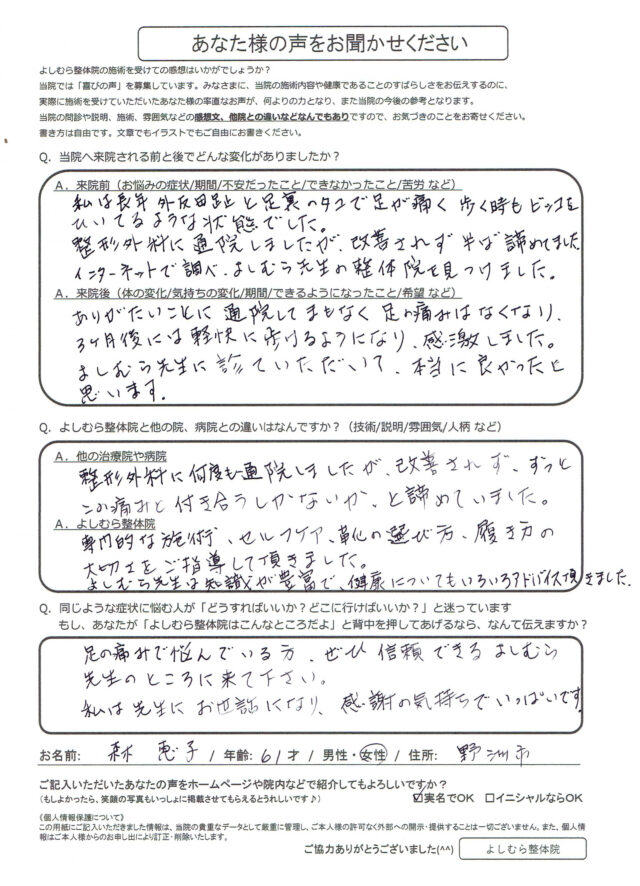 あなた様の声をお聞かせください
よしむら整体院の施術を受けての感想はいかがでしょうか？
当院では「喜びの声」を募集しています。みなさまに、当院の施術内容や健康であることのすばらしさをお伝えするのに、
実際に施術を受けていただいたあなた様の率直なお声が、何よりの力となり、また当院の今後の参考となります。
当院の問診や説明、施術、雰囲気などの感想文、他院との違いなどなんでもありですので、お気づきのことをお寄せください。
書き方は自由です。文章でもイラストでもご自由にお書きください。
Q．当院へ来院される前と後でどんな変化がありましたか？
A．来院前（お悩みの症状/期間/不安だったこと/できなかったこと/苦労 など）
私は長年 外反母趾と足裏のタコで足が痛く 歩く時もビッコを
ひいてるような状態でした。
整形外科に通院しましたが、改善されず 半ば諦めてました
インターネットで調べ、よしむら先生の整体院を見つけました。
A．来院後（体の変化/気持ちの変化/期間/できるようになったこと/希望 など）
ありがたいことに 通院してまもなく 足の痛みはなくなり、
3ヶ月後には軽快に歩けるようになり、感激しました。
よしむら先生に診ていただいて、本当に良かったと
思います。
Q．よしむら整体院と他の院、病院との違いはなんですか？（技術/説明/雰囲気/人柄 など）
A．他の治療院や病院
整形外科に何度も通院しましたが、改善されず、ずっと
この痛みと付き合うしかないか、と諦めていました。
A．よしむら整体院
専門的な施術、セルフケア、靴の選び方、履き方の
大切さをご指導して頂きました。
よしむら先生は知識が豊富で、健康についてもいろいろアドバイス頂きました。
Q．同じような症状に悩む人が「どうすればいいか？どこに行けばいいか？」と迷っています
もし、あなたが「よしむら整体院はこんなところだよ」と背中を押してあげるなら、なんて伝えますか？
足の痛みで悩んでいる方、ぜひ 信頼できる よしむら
先生のところに来て下さい。
私は先生に お世話になり、感謝の気持ちでいっぱいです
お名前： 森 恵子 / 年齢：61才 / 男性・女性 / 住所： 野洲市
ご記入いただいたあなたの声をホームページや院内などで紹介してもよろしいですか？
（もしよかったら、笑顔の写真もいっしょに掲載させてもらえるとうれしいです♪） ☑実名でOK □イニシャルならOK
《個人情報保護について》
この用紙にご記入いただきました情報は、当院の貴重なデータとして厳重に管理し、ご本人様の許可なく外部への開示・提供することは一切ございません。また、個人情
報はご本人様からのお申し出により訂正・削除いたします。
ご協力ありがとうございました(^^) よしむら整体院